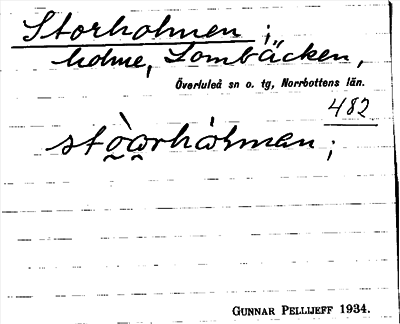 Storholmen i
holme, Lombäcken,
Överluleå sn o. tg, Norrbottens län.
482
GUNNAR PELLIJEFF 1934.